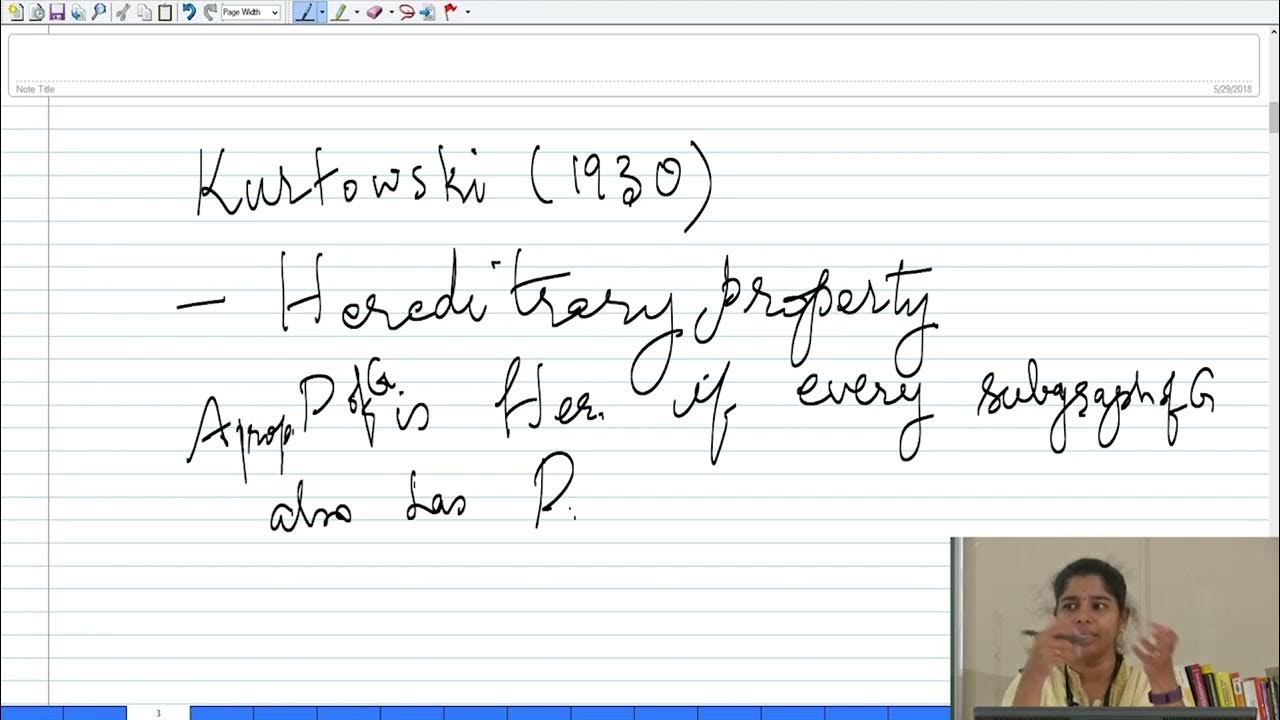 Page Width
Note Title
5/29/2018
Kurtowski (1930)
- Hereditrary property
A prop. P of G. is Her. if every subgraph of G
also has P.
3